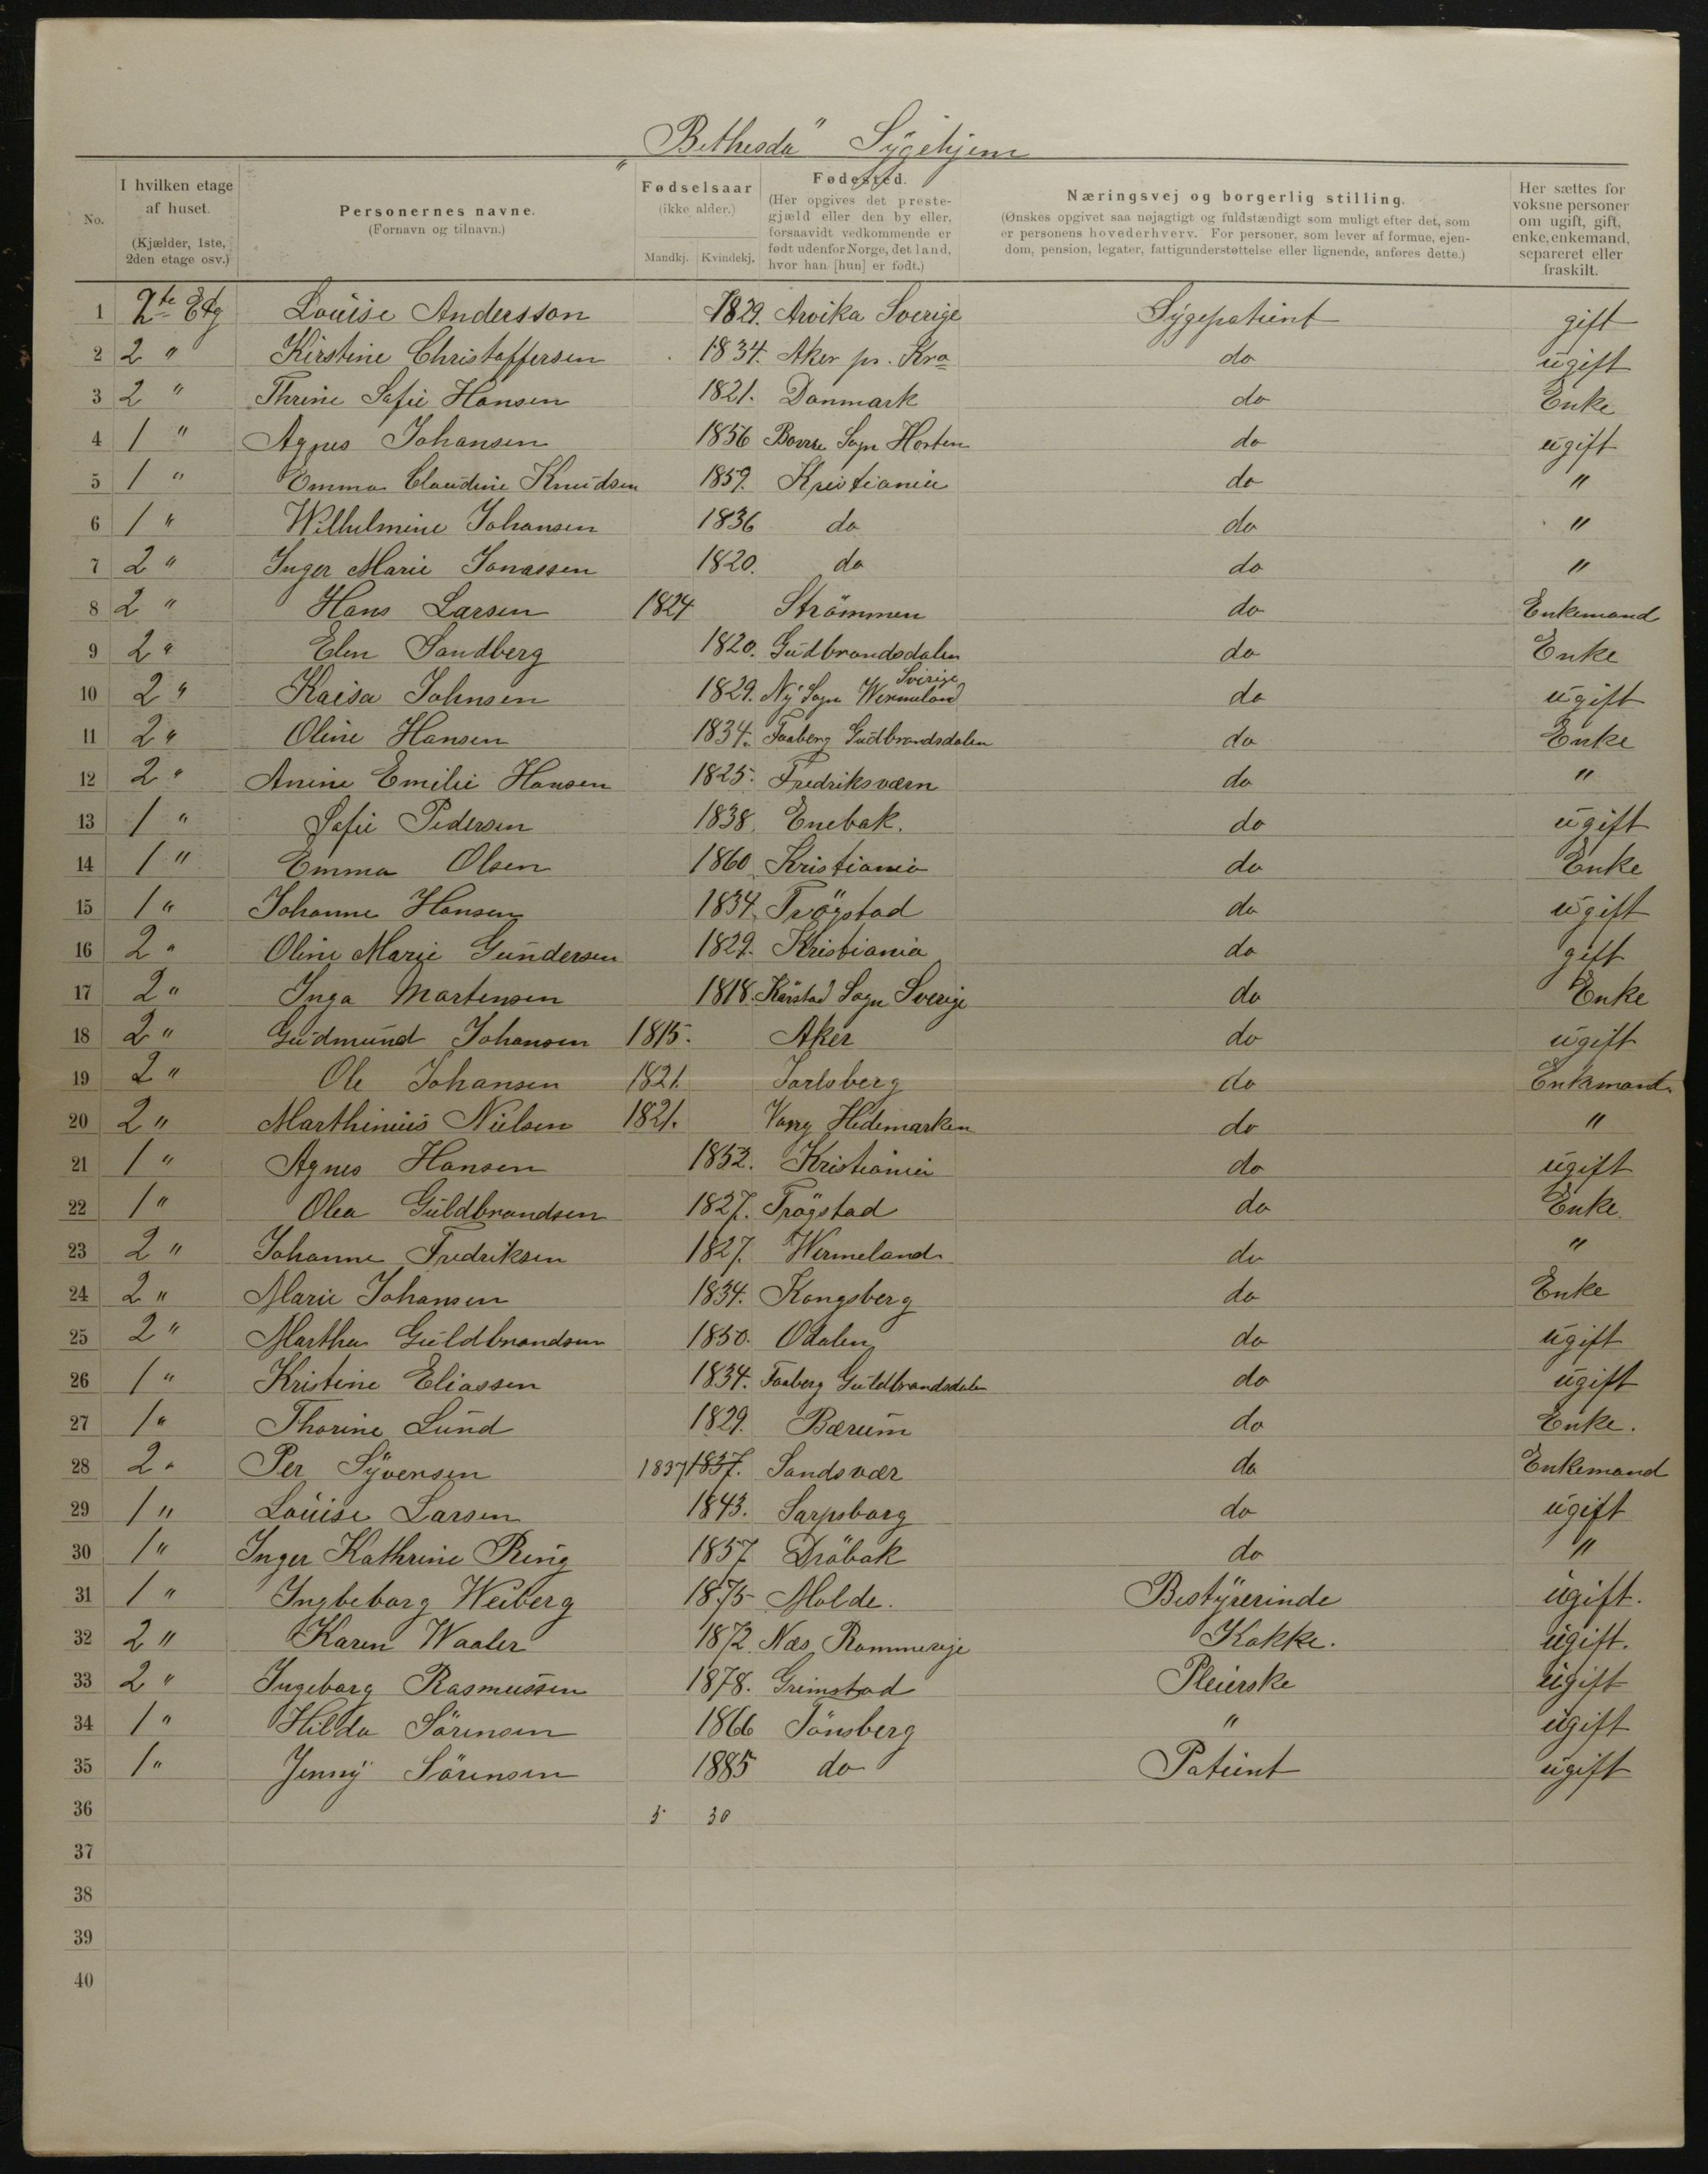 „Bethesda" Sygehjem
No. I hvilken etage af huset. (Kjælder, 1ste, 2den etage osv.) Personernes navne. (Fornavn og tilnavn.) Fødselsaar (ikke alder.) Mandkj. Kvindekj. Fødested. (Her opgives det prestegjæld eller den by eller, forsaavidt vedkommende er født udenfor Norge, det land, hvor han [hun] er født.) Næringsvej og borgerlig stilling. (Ønskes opgivet saa nøjagtigt og fuldstændigt som muligt efter det, som er personens hovederhverv. For personer, som lever af formue, ejendom, pension, legater, fattigunderstøttelse eller lignende, anføres dette.) Her sættes for voksne personer om ugift, gift, enke, enkemand, separeret eller fraskilt.
1 2te Etg Louise Andersson 1829. Arvika Sverige Sygepatient gift
2 2 " Kirstine Christoffersen 1834. Aker pr. Kra do ugift
3 2 " Thrine Sofie Hansen 1821. Danmark do Enke
4 1 " Agnes Johansen 1856 Borre Sogn Horten do ugift
5 1 " Emma Claudine Knudsen 1859. Kristiania do "
6 1 " Wilhelmine Johansen 1836 do do "
7 2 " Inger Marie Jonassen 1820. do do "
8 2 " Hans Larsen 1824 Strömmen do Enkemand
9 2 " Elen Sandberg 1820. Gudbrandsdalen do Enke
10 2 " Kaisa Johnsen 1829. Ny Sogn Wermeland Sverige do ugift
11 2 " Oline Hansen 1834. Faaberg Gudbrandsdalen do Enke
12 2 " Anine Emilie Hansen 1825. Fredriksværn do "
13 1 " Sofie Pedersen 1838. Enebak. do ugift
14 1 " Emma Olsen 1860 Kristiania do Enke
15 1 " Johanne Hansen 1834. Trögstad do ugift
16 2 " Oline Marie Gundersen 1829. Kristiania do gift
17 2 " Inga Martensen 1818. Karstad Sogn Sverige do Enke
18 2 " Gudmund Johansen 1815. Aker do ugift
19 2 " Ole Johansen 1821. Jarlsberg do Enkemand.
20 2 " Marthinius Nielsen 1821. Hedemarken do "
21 1 " Agnes Hansen 1852. Kristiania do ugift
22 1 " Olea Guldbrandsen 1827. Trögstad do Enke.
23 2 " Johanne Fredriksen 1827. Wermeland do "
24 2 " Marie Johansen 1834. Kongsberg do Enke
25 2 " Martha Guldbrandsen 1850. Odalen do ugift
26 1 " Kristine Eliassen 1834. Faaberg Guldbrandsdalen do ugift
27 1 " Thorine Lund 1829. Bærum do Enke.
28 2 " Per Syvensen 1837 1837. Sandsvær do Enkemand
29 1 " Louise Larsen 1843. Sarpsborg do ugift
30 1 " Inger Kathrine Ring 1857 Dröbak do "
31 1 " Ingbeborg Weiberg 1875 Molde. Bestyrerinde ugift.
32 2 " Karen Waaler 1872 Næs Rommerige Kokke. ugift.
33 2 " Ingeborg Rasmussen 1878. Grimstad Pleierske ugift
34 1 " Hilda Sörensen 1866 Tönsberg " ugift
35 1 " Jenny Sörensen 1885 do Patient ugift
36 5 30
37
38
39
40